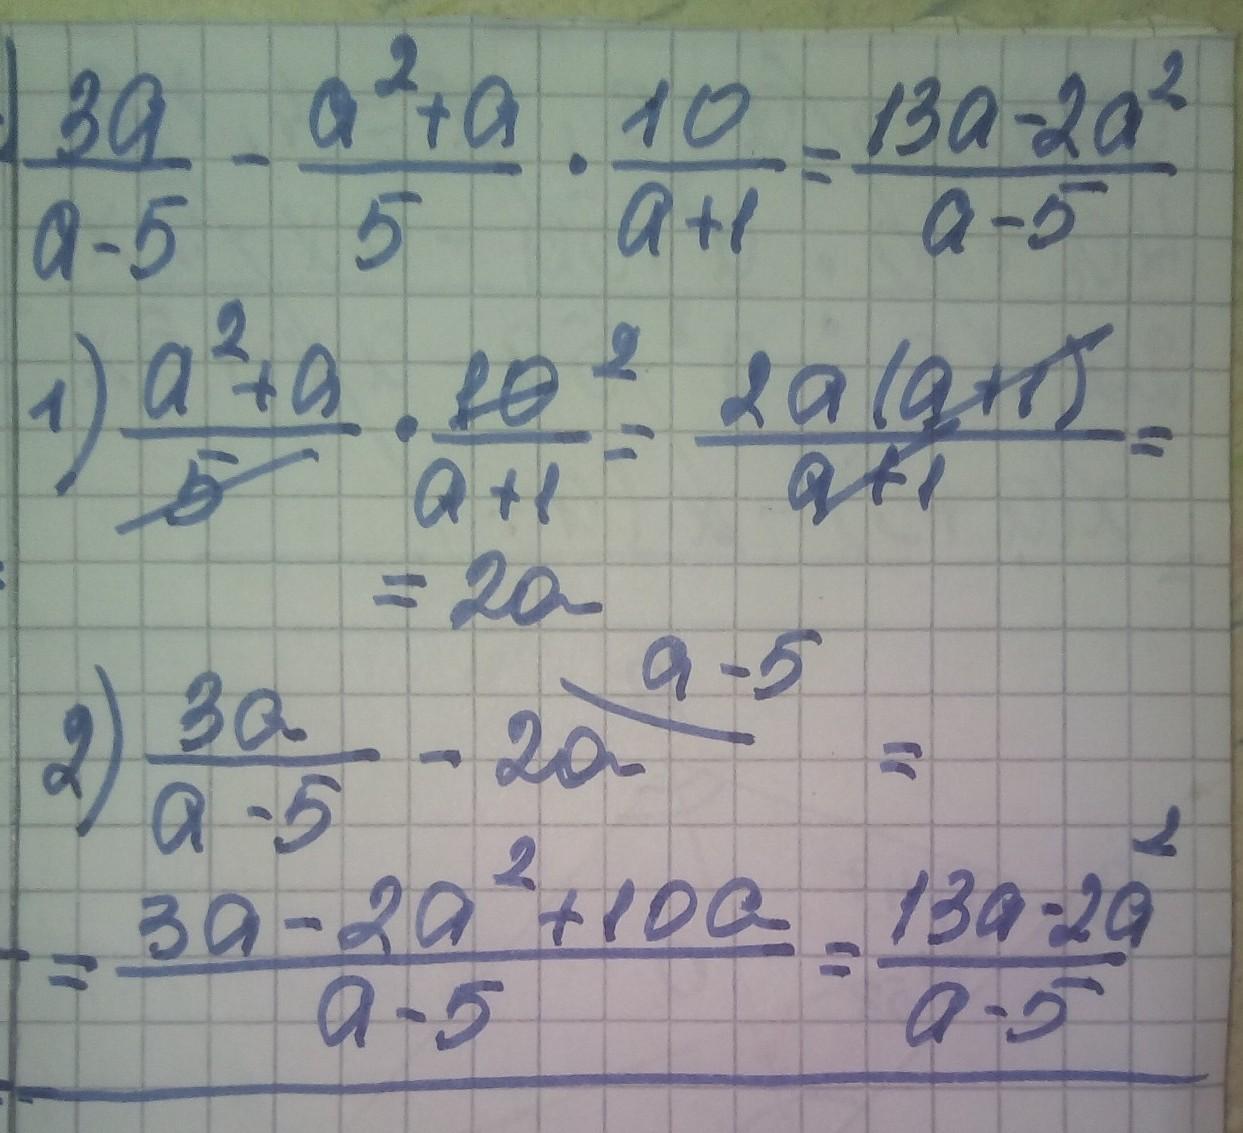 3a/(a-5) - (a²+a)/5 · 10/(a+1) = (13a-2a²)/(a-5)
1) (a²+a)/5 · 10/(a+1) ² = 2a(a+1)/(a+1) =
= 2a
2) 3a/(a-5) - 2a \ a-5 =
= (3a-2a²+10a)/(a-5) = (13a-2a²)/(a-5)